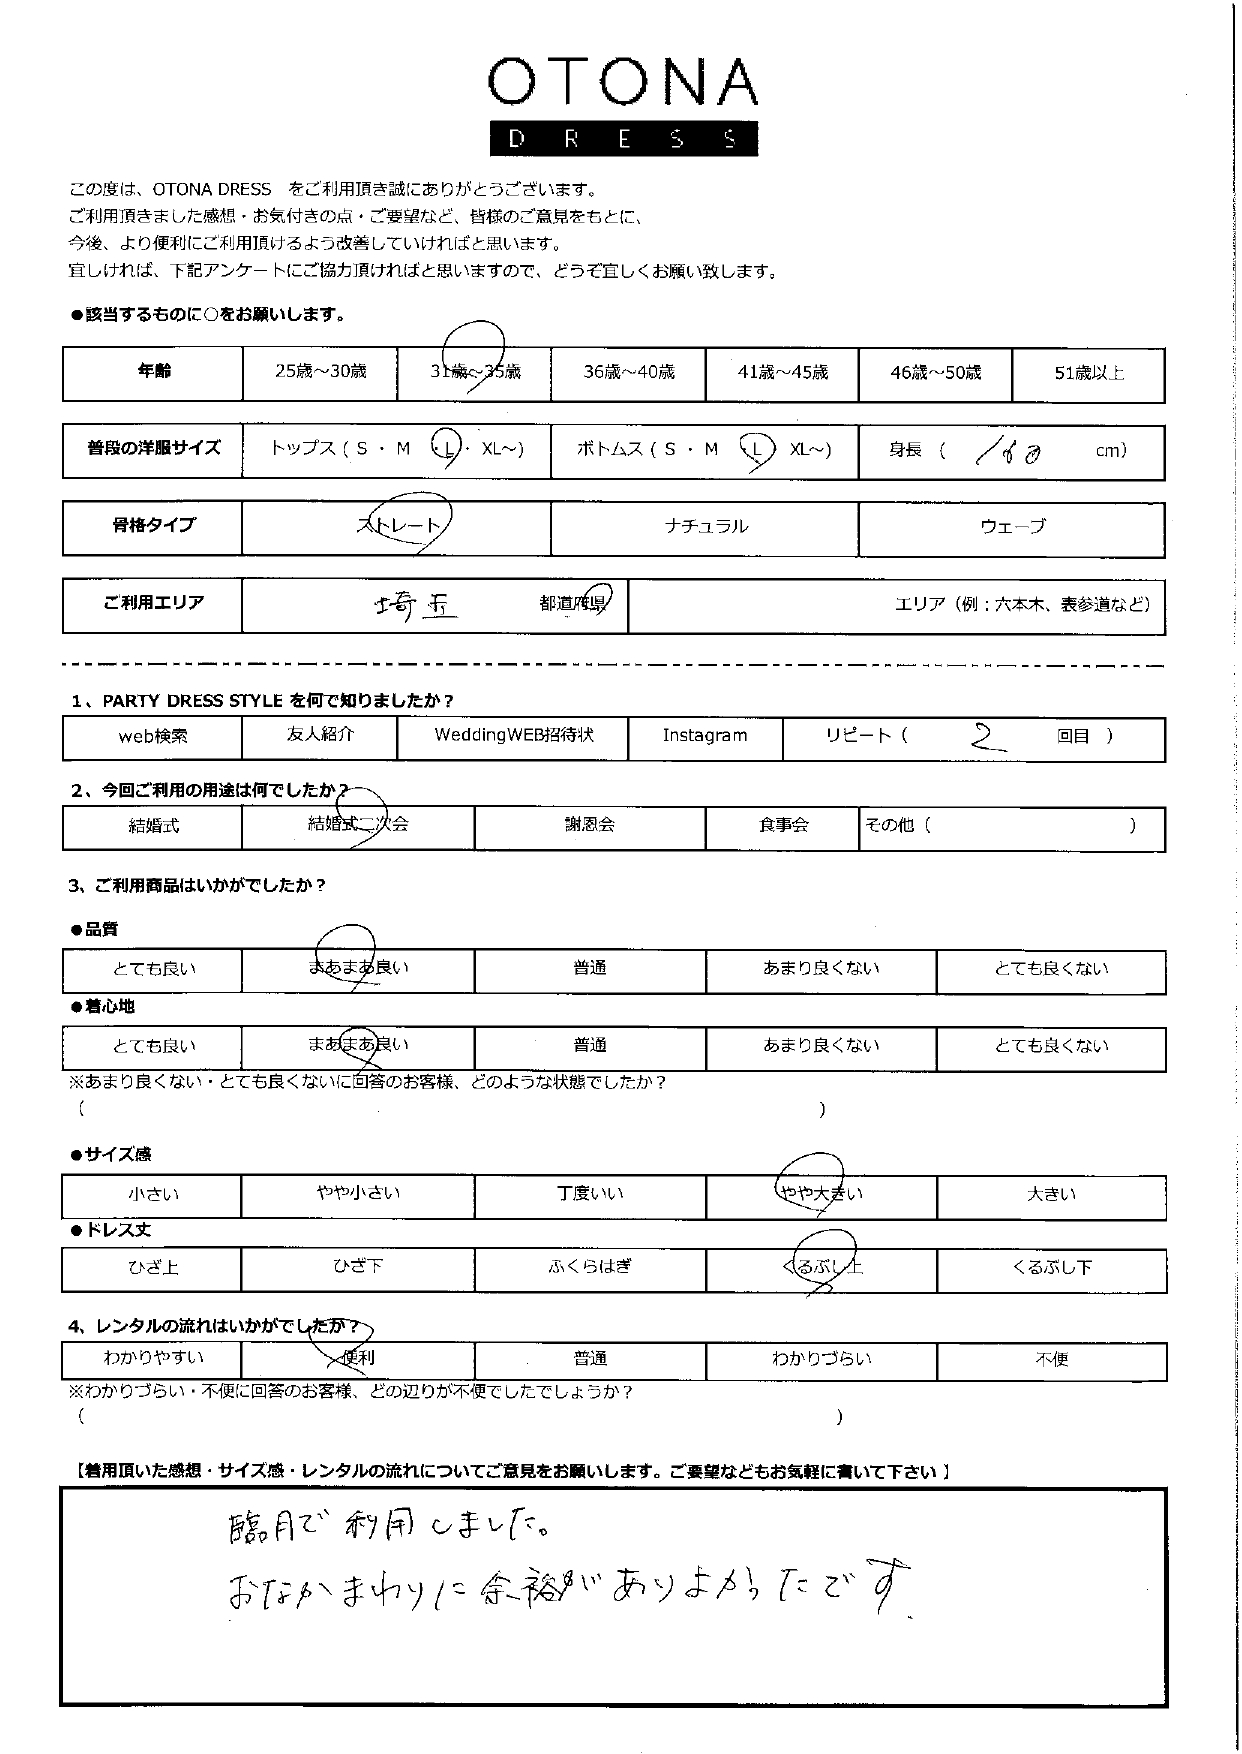 OTONA
DRESS
この度は、OTONA DRESS　をご利用頂き誠にありがとうございます。
ご利用頂きました感想・お気付きの点・ご要望など、皆様のご意見をもとに、
今後、より便利にご利用頂けるよう改善していければと思います。
宜しければ、下記アンケートにご協力頂ければと思いますので、どうぞ宜しくお願い致します。
●該当するものに○をお願いします。
年齢 25歳～30歳 31歳～35歳 36歳～40歳 41歳～45歳 46歳～50歳 51歳以上
普段の洋服サイズ トップス ( S ・ M ・L・ XL～) ボトムス ( S ・ M ・L) XL～) 身長 ( 160 cm)
骨格タイプ ストレート ナチュラル ウェーブ
ご利用エリア 埼玉 都道府県 エリア（例：六本木、表参道など）
1、PARTY DRESS STYLE を何で知りましたか？
web検索 友人紹介 WeddingWEB招待状 Instagram リピート（ 2 回目 ）
2、今回ご利用の用途は何でしたか？
結婚式 結婚式二次会 謝恩会 食事会 その他（ ）
3、ご利用商品はいかがでしたか？
●品質
とても良い まあまあ良い 普通 あまり良くない とても良くない
●着心地
とても良い まあまあ良い 普通 あまり良くない とても良くない
※あまり良くない・とても良くないに回答のお客様、どのような状態でしたか？
( )
●サイズ感
小さい やや小さい 丁度いい やや大きい 大きい
●ドレス丈
ひざ上 ひざ下 ふくらはぎ くるぶし上 くるぶし下
4、レンタルの流れはいかがでしたか？
わかりやすい 便利 普通 わかりづらい 不便
※わかりづらい・不便に回答のお客様、どの辺りが不便でしたでしょうか？
( )
【着用頂いた感想・サイズ感・レンタルの流れについてご意見をお願いします。ご要望などもお気軽に書いて下さい】
臨月で利用しました。
おなかまわりに余裕がありよかったです